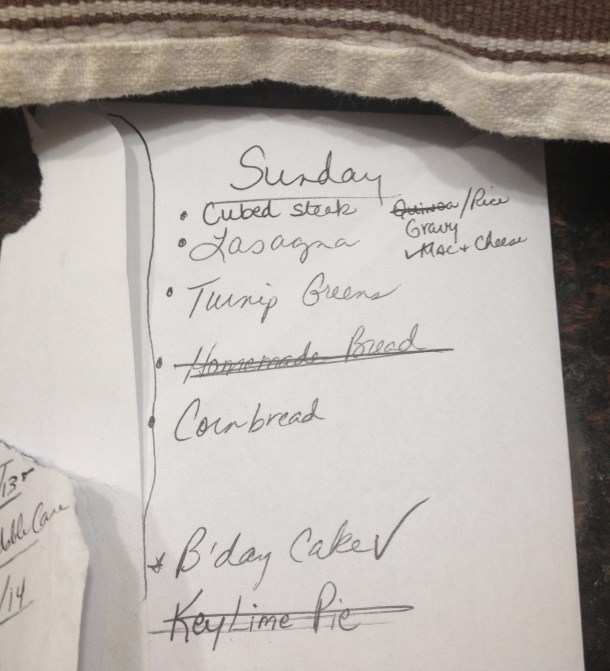 Sunday
• Cubed steak Quinoa/Rice
Gravy
• Lasagna ✓MAC + Cheese
• Turnip Greens
• Homemade Bread
• Cornbread
* B'day Cake ✓
Key Lime Pie
/13
/14